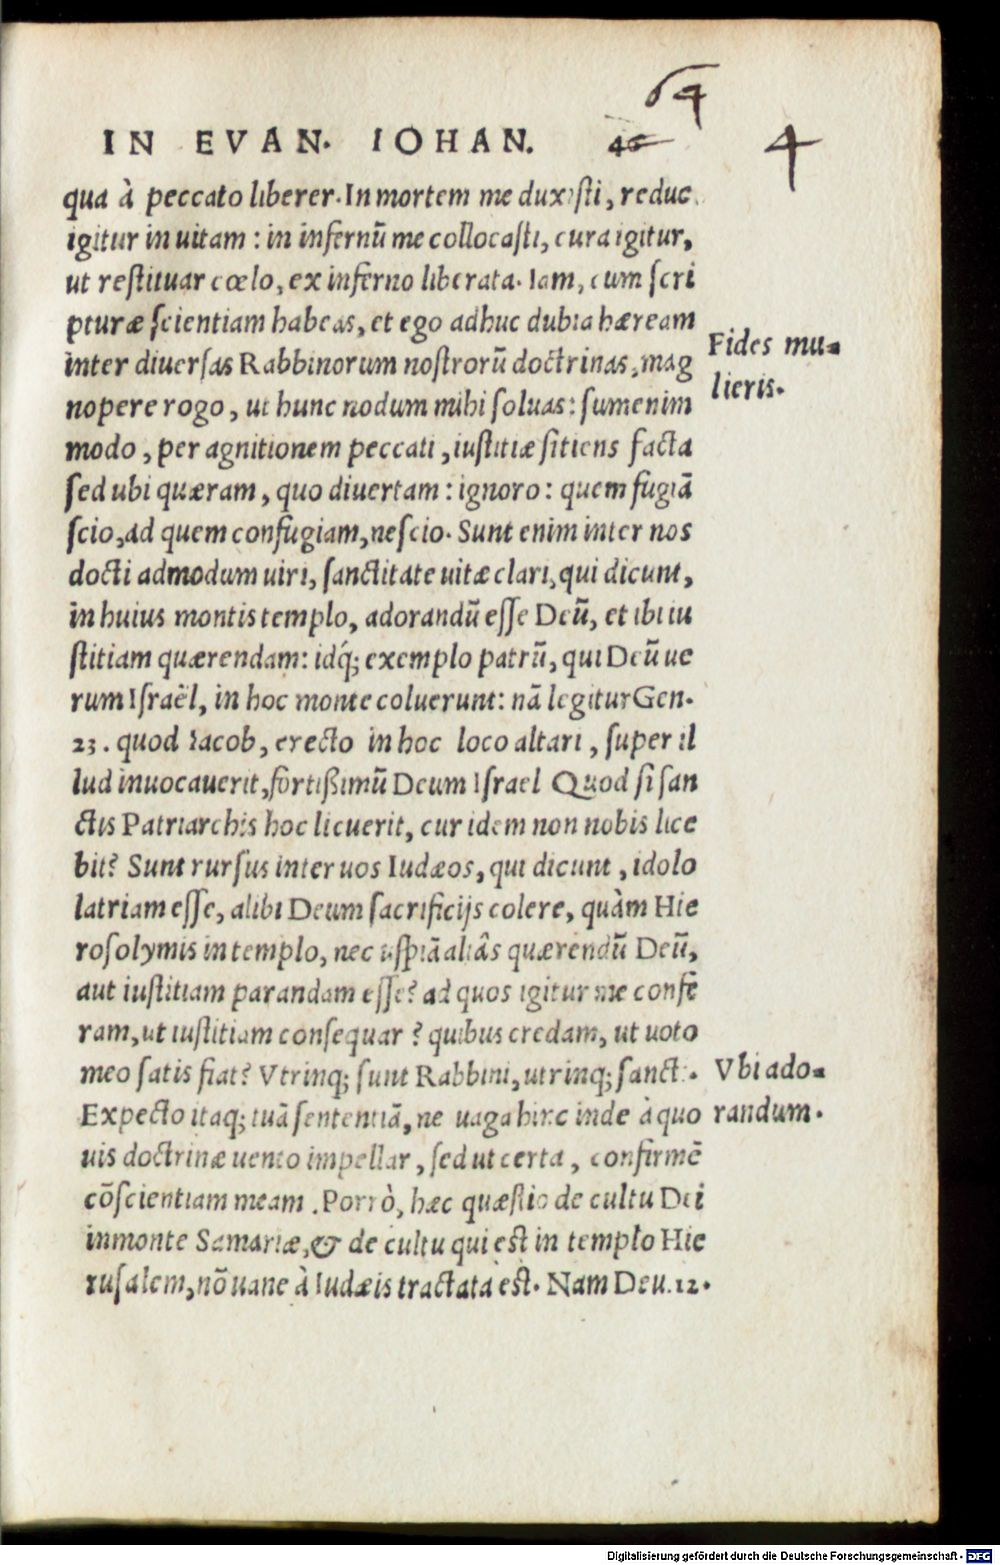 IN EVAN. IOHAN. 64
46 4
qua à peccato liberer. In mortem me duxisti, reduc
igitur in uitam : in infernũ me collocasti, cura igitur,
ut restituar cœlo, ex inferno liberata. Iam, cum scri
pturæ scientiam habeas, et ego adhuc dubia hæream
inter diuersas Rabbinorum nostrorũ doctrinas, mag
nopere rogo, ut hunc nodum mihi soluas: sum enim
modo, per agnitionem peccati, iustitiæ sitiens facta
sed ubi quæram, quo diuertam : ignoro : quem fugiã
scio, ad quem confugiam, nescio. Sunt enim inter nos
docti admodum uiri, sanctitate uitæ clari, qui dicunt,
in huius montis templo, adorandũ esse Deũ, et ibi iu
stitiam quærendam: idq́; exemplo patrũ, qui Deũ ue
rum Israël, in hoc monte coluerunt: nã legitur Gen.
23. quod Iacob, erecto in hoc loco altari, super il
lud inuocauerit, fortißimũ Deum Israel Quod si san
ctis Patriarchis hoc licuerit, cur idem non nobis lice
bit? Sunt rursus inter uos Iudæos, qui dicunt, idolo
latriam esse, alibi Deum sacrificijs colere, quàm Hie
rosolymis in templo, nec uspiã aliâs quærendũ Deũ,
aut iustitiam parandam esse? ad quos igitur me confe
ram, ut iustitiam consequar ? quibus credam, ut uoto
meo satis fiat? Vtrinq; sunt Rabbini, utrinq; sancti.
Expecto itaq; tuã sententiã, ne uaga hinc inde à quo
uis doctrinæ uento impellar, sed ut certa, confirmẽ
cõscientiam meam. Porrò, hæc quæstio de cultu Dei
in monte Samariæ, & de cultu qui est in templo Hie
rusalem, nõ uane à Iudæis tractata est. Nam Deu. 12.
Fides mu-
lieris.
Vbi ado-
randum.
Digitalisierung gefördert durch die Deutsche Forschungsgemeinschaft - DFG